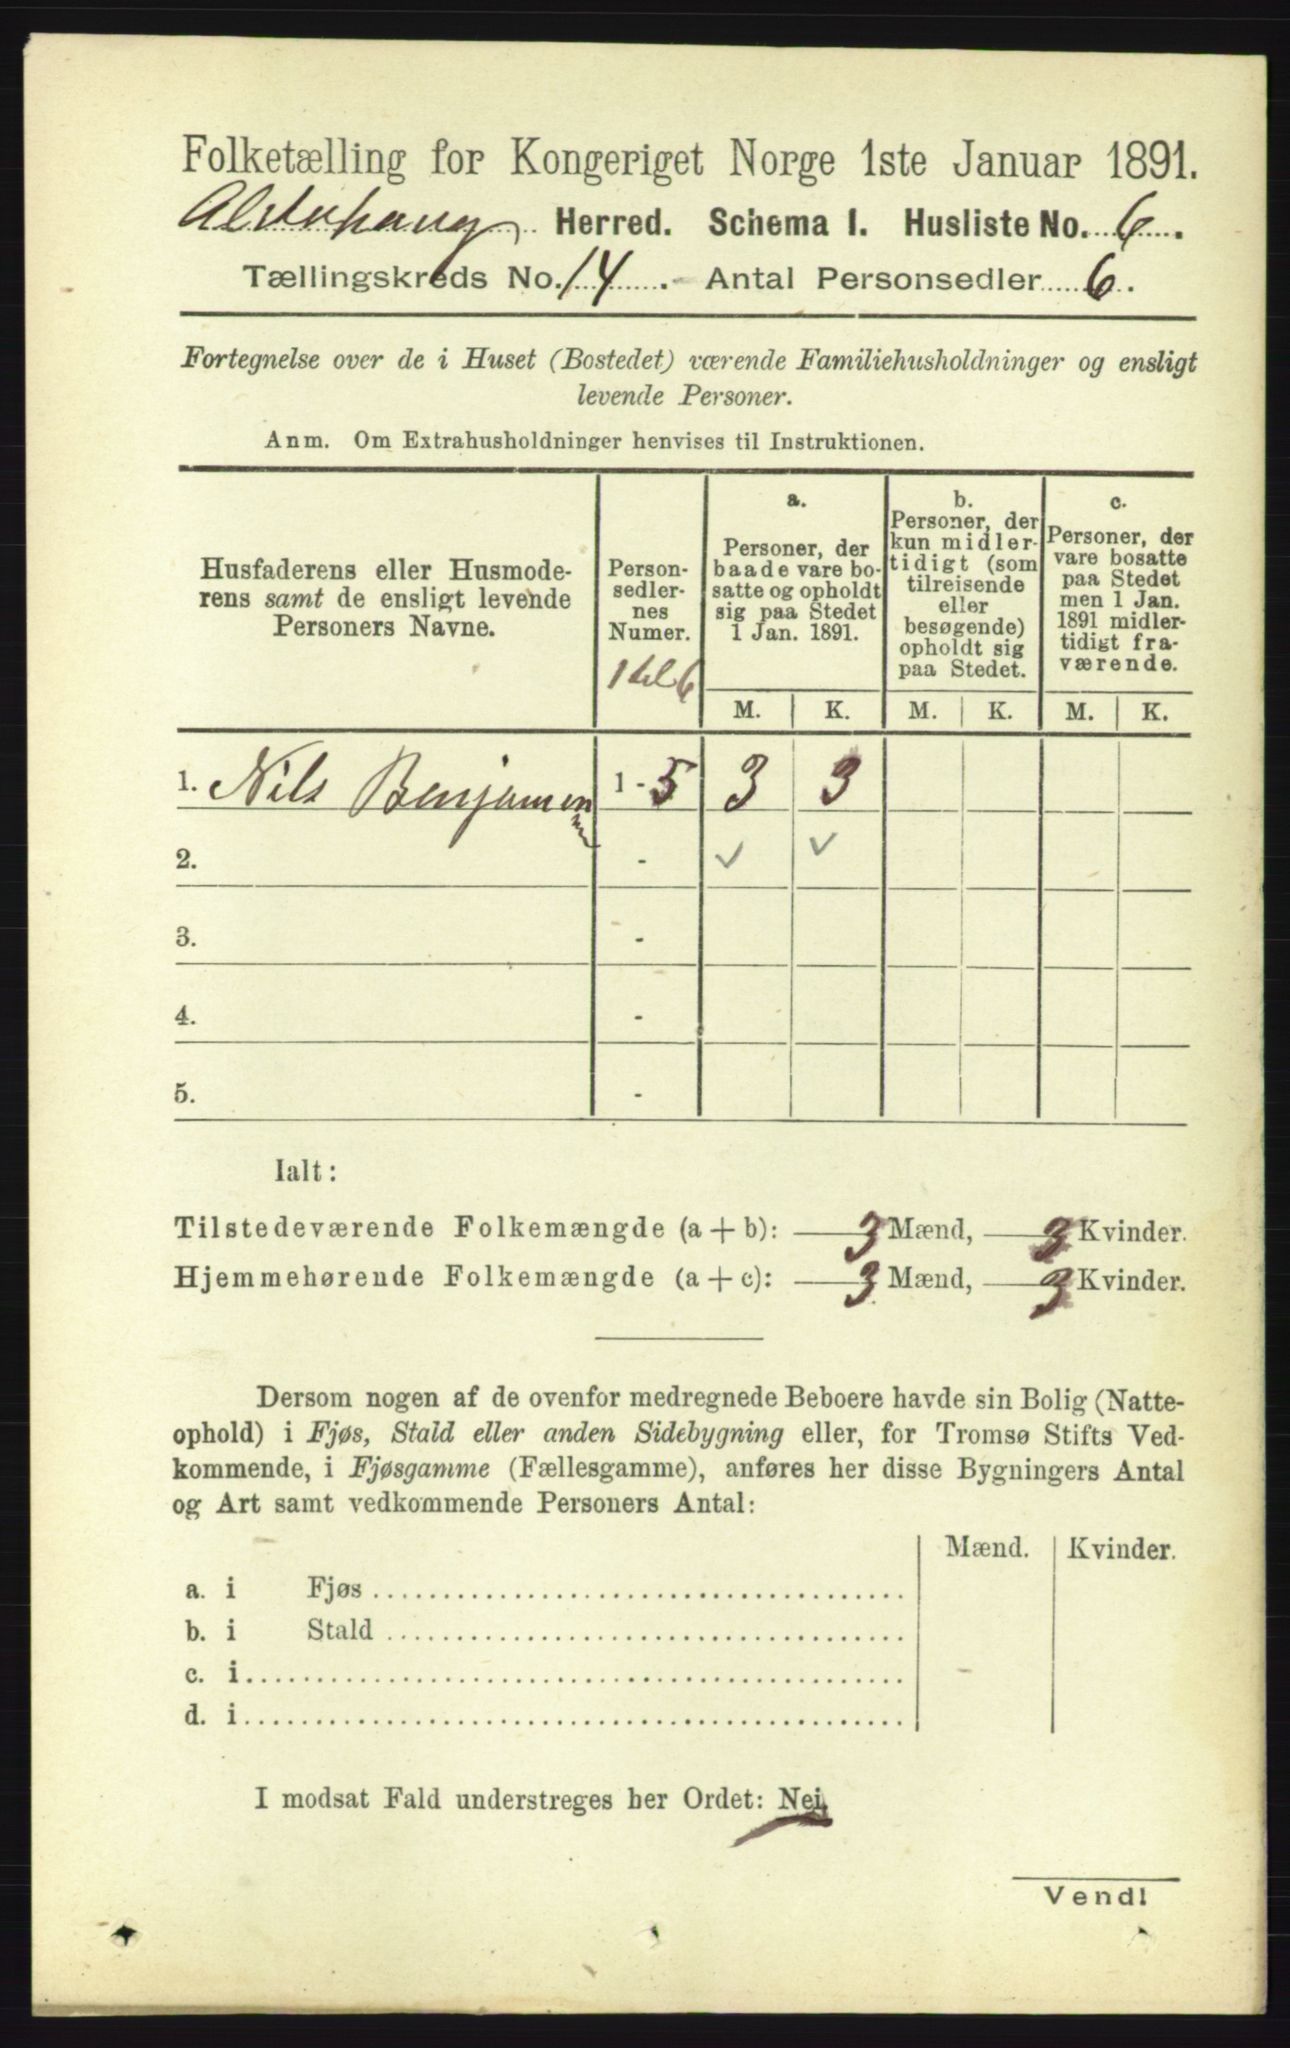 Folketælling for Kongeriget Norge 1ste Januar 1891.
Alstahaug Herred. Schema I. Husliste No. 6.
Tællingskreds No. 14. - Antal Personsedler 6.
Fortegnelse over de i Huset (Bostedet) værende Familiehusholdninger og ensligt
levende Personer.
Anm. Om Extrahusholdninger henvises til Instruktionen.
Husfaderens eller Husmode-
rens samt de ensligt levende
Personers Navne.
Person-
sedler-
nes
Numer.
1 til 6
a.
Personer, der
baade vare bo-
satte og opholdt
sig paa Stedet
1 Jan. 1891.
M. K.
b.
Personer, der
kun midler-
tidigt (som
tilreisende
eller
besøgende)
opholdt sig
paa Stedet.
M. K.
c.
Personer, der
vare bosatte
paa Stedet
men 1 Jan.
1891 midler-
tidigt fra-
værende.
M. K.
1. Nils Benjamin 1 - 5 3 3
2. - ✓ ✓
3. -
4. -
5. -
Ialt:
Tilstedeværende Folkemængde (a + b): 3 Mænd, 3 Kvinder.
Hjemmehørende Folkemængde (a + c): 3 Mænd, 3 Kvinder.
Dersom nogen af de ovenfor medregnede Beboere havde sin Bolig (Natte-
ophold) i Fjøs, Stald eller anden Sidebygning eller, for Tromsø Stifts Ved-
kommende, i Fjøsgamme (Fællesgamme), anføres her disse Bygningers Antal
og Art samt vedkommende Personers Antal:
Mænd. Kvinder.
a. i Fjøs
b. i Stald
c. i
d. i
I modsat Fald understreges her Ordet: Nei.
Vend!